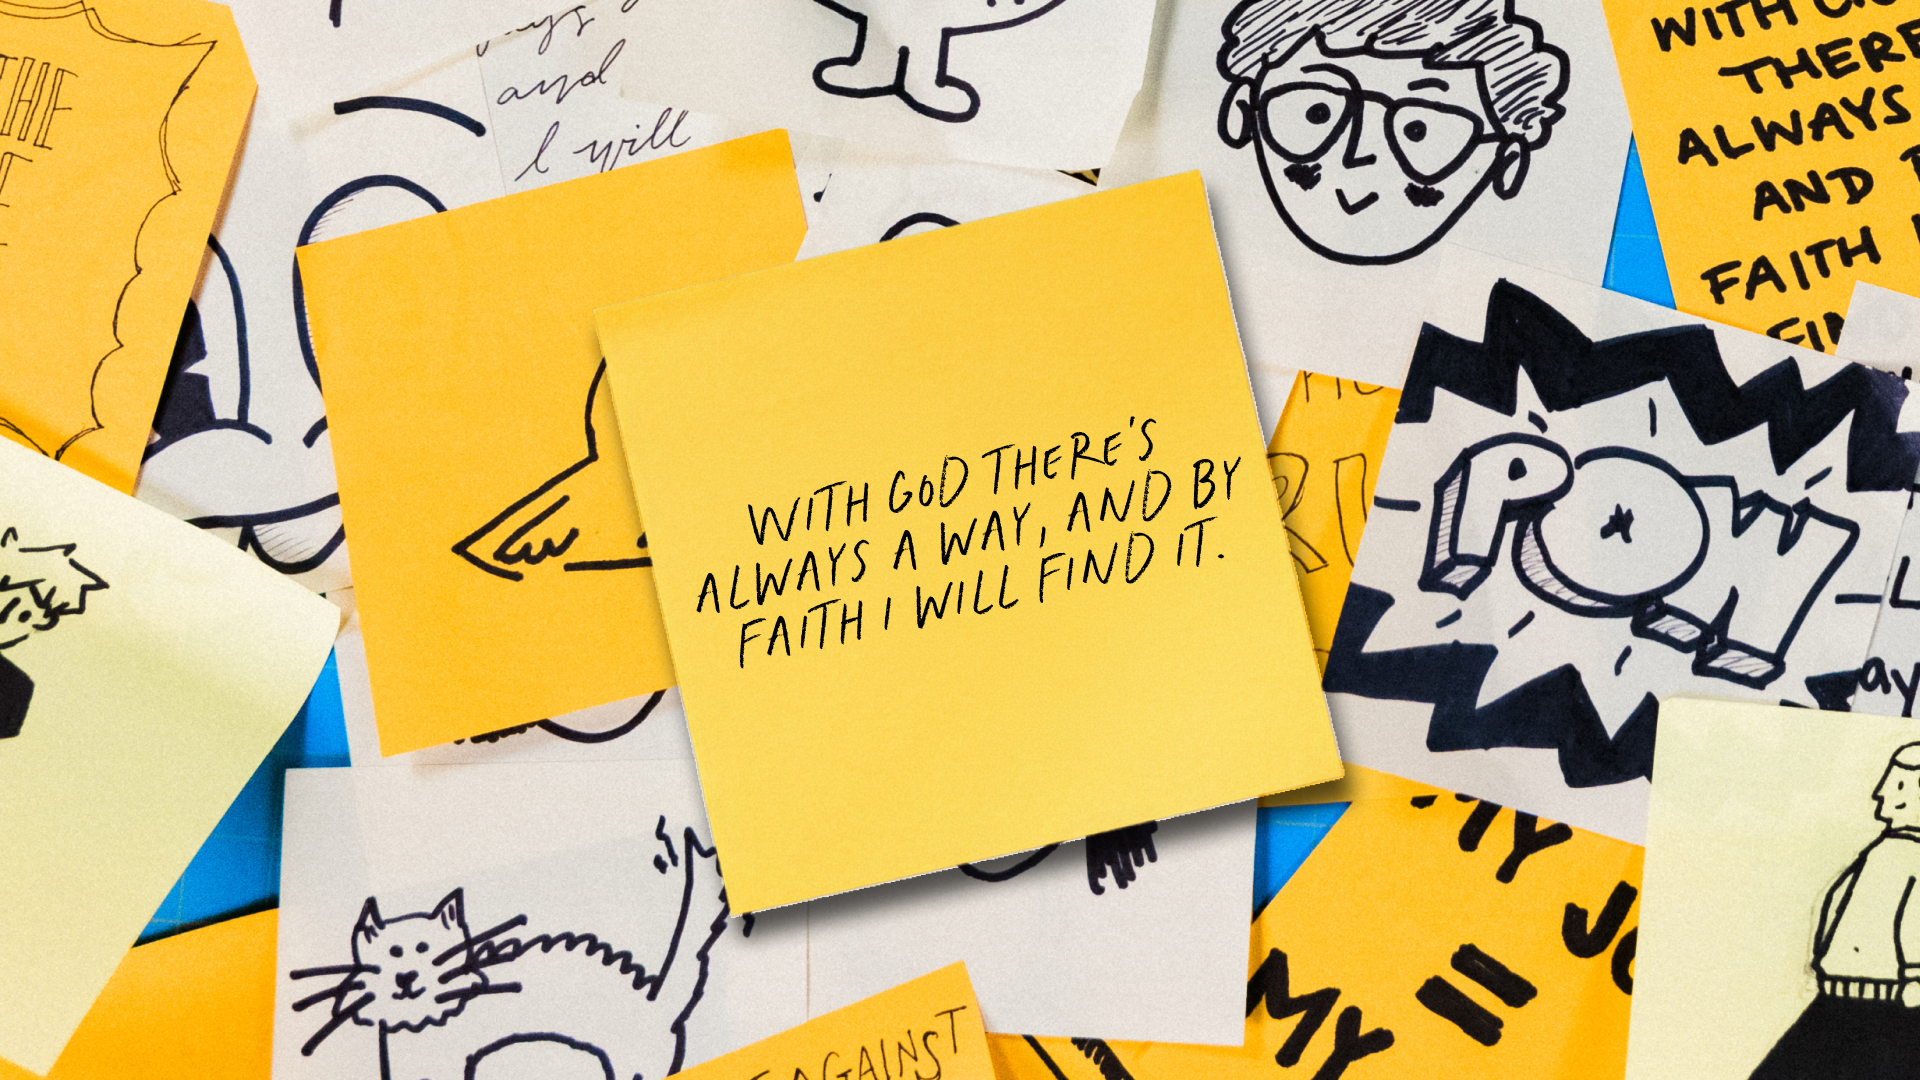 WITH GOD THERE'S
ALWAYS A WAY, AND BY
FAITH I WILL FIND IT.
and
I will
THE
WITH
THERE
ALWAYS
AND
FAITH
POW
MY
MY =
AGAINST